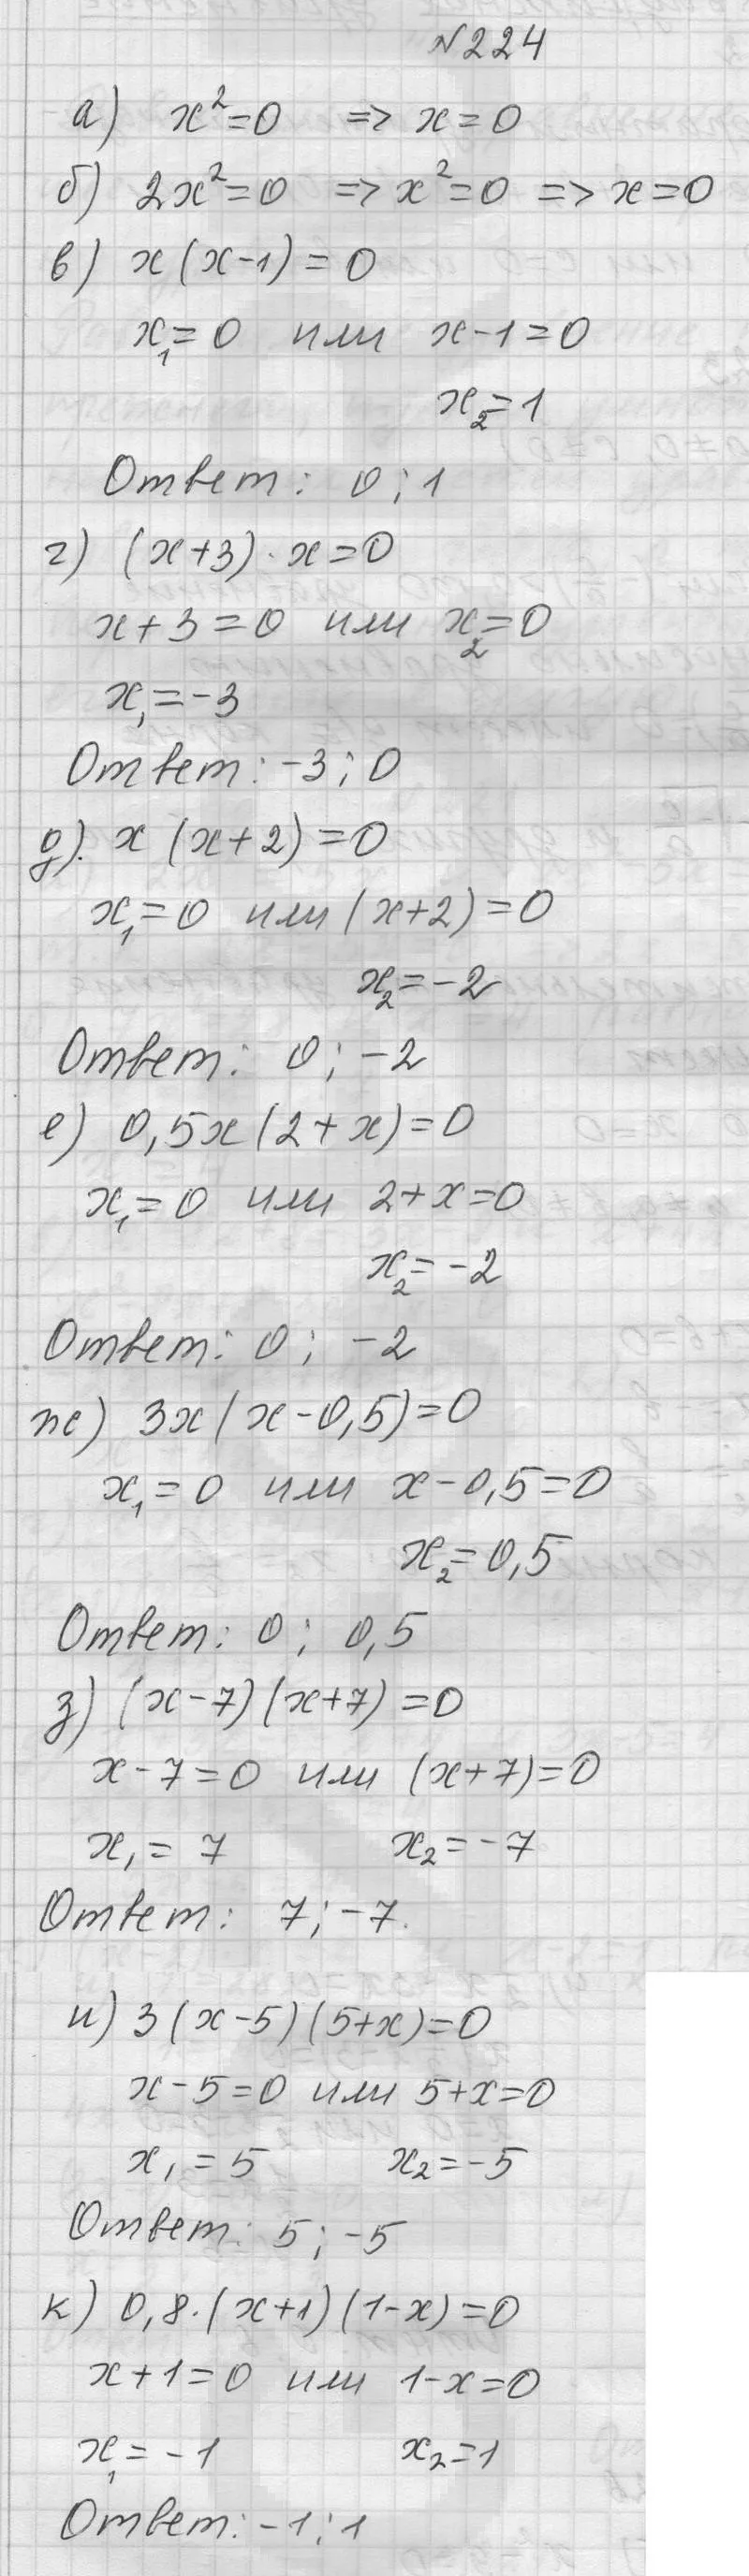 №224
а) x²=0 => x=0
б) 2x²=0 => x²=0 => x=0
в) x(x-1)=0
x₁=0 или x-1=0
x₂=1
Ответ: 0; 1
г) (x+3)·x=0
x+3=0 или x₂=0
x₁=-3
Ответ: -3; 0
д). x(x+2)=0
x₁=0 или (x+2)=0
x₂=-2
Ответ: 0; -2
е) 0,5x(2+x)=0
x₁=0 или 2+x=0
x₂=-2
Ответ: 0; -2
ж) 3x(x-0,5)=0
x₁=0 или x-0,5=0
x₂=0,5
Ответ: 0; 0,5
з) (x-7)(x+7)=0
x-7=0 или (x+7)=0
x₁=7 x₂=-7
Ответ: 7; -7.
и) 3(x-5)(5+x)=0
x-5=0 или 5+x=0
x₁=5 x₂=-5
Ответ: 5; -5
к) 0,8·(x+1)(1-x)=0
x+1=0 или 1-x=0
x₁=-1 x₂=1
Ответ: -1; 1